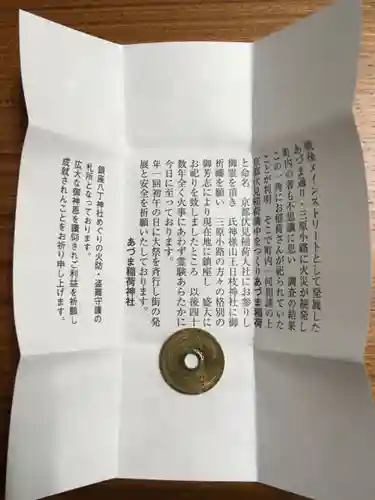 戦後メインストリートとして発展した
あづま通り・三原小路に火災が続発し
町内の者も不思議に思い 調査の結果
この一角にお稲荷さんが祀られていた
ことが判明 そこで町内一同相談の上
京都伏見稲荷講中をつくりあづま稲荷
と命名 京都伏見稲荷大社にお参りし
御霊を頂き 氏神様山王日枝神社に御
祈祷を願い 三原小路の方々の格別の
御芳志により現在地に鎮座し 盛大に
お祀りを致しましたところ 以後四十
数年全く火事にあわず霊験あらたかに
今日に至っております。
年一回初午の日に大祭を斉行し街の発
展と安全を祈願いたしております。
あづま稲荷神社
銀座八丁神社めぐりの火防・盗難守護の
札所となっております。
広大な御神恩を讃仰されご利益を祈願し
成就されんことをお祈り申し上げます。